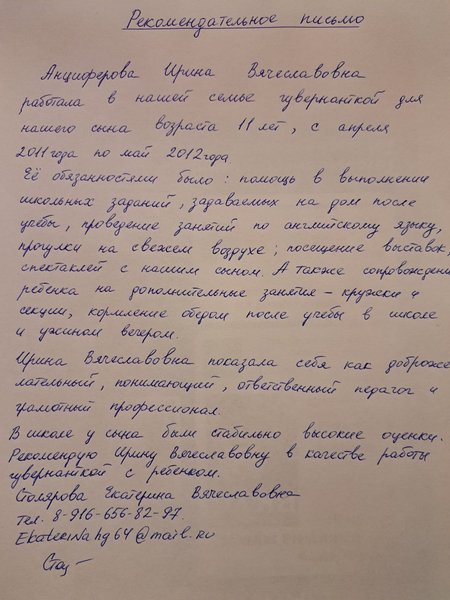 Рекомендательное письмо
Анциферова Ирина Вячеславовна
работала в нашей семье гувернанткой для
нашего сына возраста 11 лет, с апреля
2011 года по май 2012 года
Её обязанностями было: помощь в выполнении
школьных заданий, задаваемых на дом после
учебы, проведение занятий по английскому языку,
прогулки на свежем воздухе; посещение выставок,
спектаклей с нашим сыном. А также сопровождени
ребенка на дополнительные занятия – кружки и
секции, кормление обедом после учебы в школе
и ужином вечером.
Ирина Вячеславовна показала себя как доброже
лательный, понимающий, ответственный педагог и
грамотный профессионал.
В школе у сына были стабильно высокие оценки.
Рекомендую Ирину Вячеславовну в качестве работы
гувернанткой с ребенком.
Столярова Екатерина Вячеславовна
тел. 8-916-656-82-97.
EkateriNahg64@mail.ru